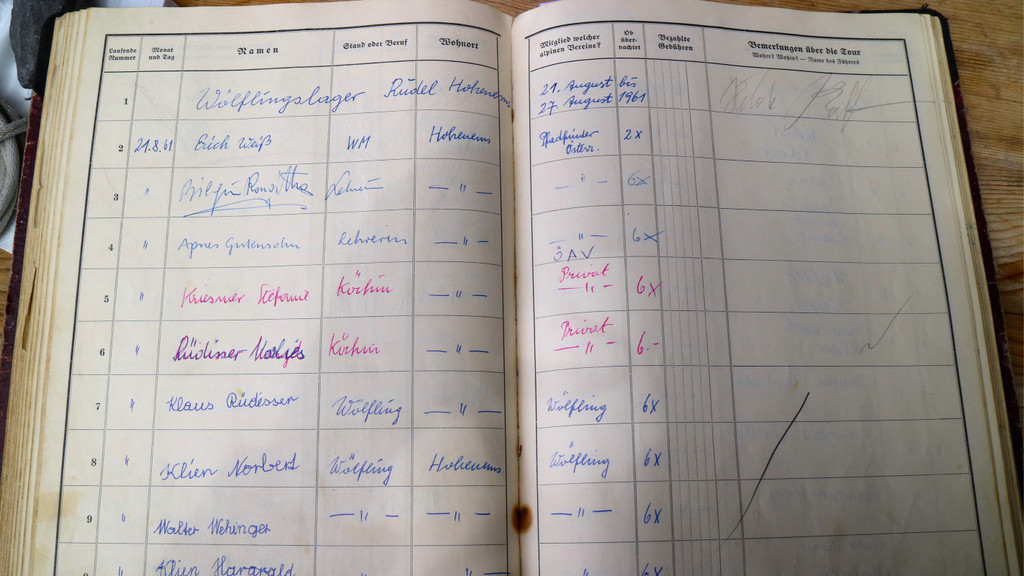 Laufende Nummer
Monat und Tag
Namen
Stand oder Beruf
Wohnort
Mitglied welcher alpinen Vereine?
Ob über- nachtet
Bezahlte Gebühren
Bemerkungen über die Tour
Woher? Wohin? — Name des Führers
1 Wölflingslager Rudel Hohenems 21. August bis
27. August 1961
2 21.8.61 Erich Weiß WM Hohenems Pfadfinder 2x
Österr.
3 " — " — — " — 6x
4 " Agnes Gutensohn Lehrerin — " — — " — 6x
ÖAV
5 " Köchin — " — Privat 6x
— " —
6 " Rüdisser Köchin — " — Privat 6.-
— " —
7 " Klaus Rüdesser Wölfling — " — Wölfling 6x
8 " Klien Norbert Wölfling Hohenems Wölfling 6x
9 " Walter Wehinger — " — — " — — " — 6x
" Klien Hararald — " — 6x